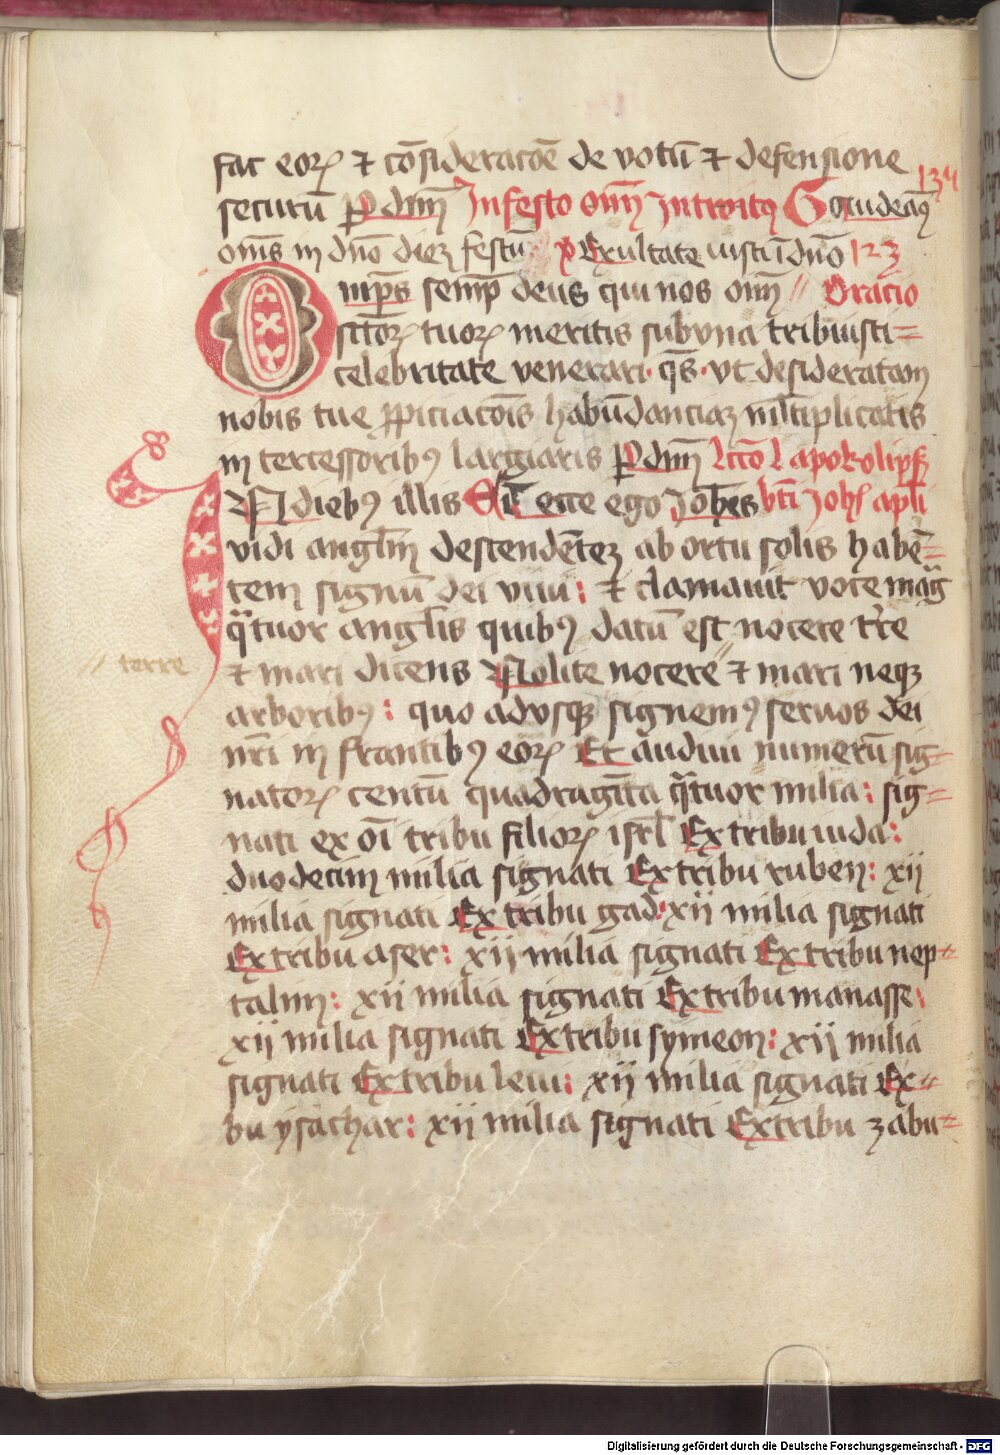 fac eoꝝ ⁊ cōsideracōe de votū ⁊ defensione
134
securū P dn̄m In festo om̄ Introitꝰ Ggaudeāꝰ
om̄s in dn̄o dieꝫ festū p̄ Exultate iusti ī dn̄o 123
O mp̄s semp̄ deus qui nos om̄ // Oracio
sctōꝝ tuoꝝ meritis sub vna tribuisti=
celebritate venerari· q̄s· vt desideratam
nobis tue ꝓpiciacōis habūdanciaꝫ multiplicatis
in tercessoribꝰ largiaris P dn̄m lc̄co l apokalipꝭ
IN diebꝰ illis Dixit ecce ego Johēs bt̄i Joh̄ apl̄i
vidi angl̄m descendēteꝫ ab ortu solis habē=
tem signū dei viui : ⁊ clamauit voce mag̃
q̃tuor angl̄is quibꝰ datū est nocere t̄re
// terre
⁊ mari dicens Nolite nocere // ⁊ mari neqꝫ
arboribꝰ : quo advsqꝫ signemꝰ seruos dei
nr̄i in frantibꝰ eoꝝ Et audiui numerū sig=
natoꝝ centū quadragīta q̃tuor milia : sig=
nati ex oī tribu filioꝝ isrl̄ Ex tribu iuda :
duodecim milia signati Ex tribu ruben : xij
milia signati Ex tribu gad : xij milia signati
Ex tribu aser : xij milia signati Ex tribu nep=
talim : xij milia signati Ex tribu manasse :
xij milia signati Ex tribu symeon : xij milia
signati Ex tribu leui : xij milia signati Ex=
bu ysachar : xij milia signati Ex tribu zabu=
Digitalisierung gefördert durch die Deutsche Forschungsgemeinschaft - DFG